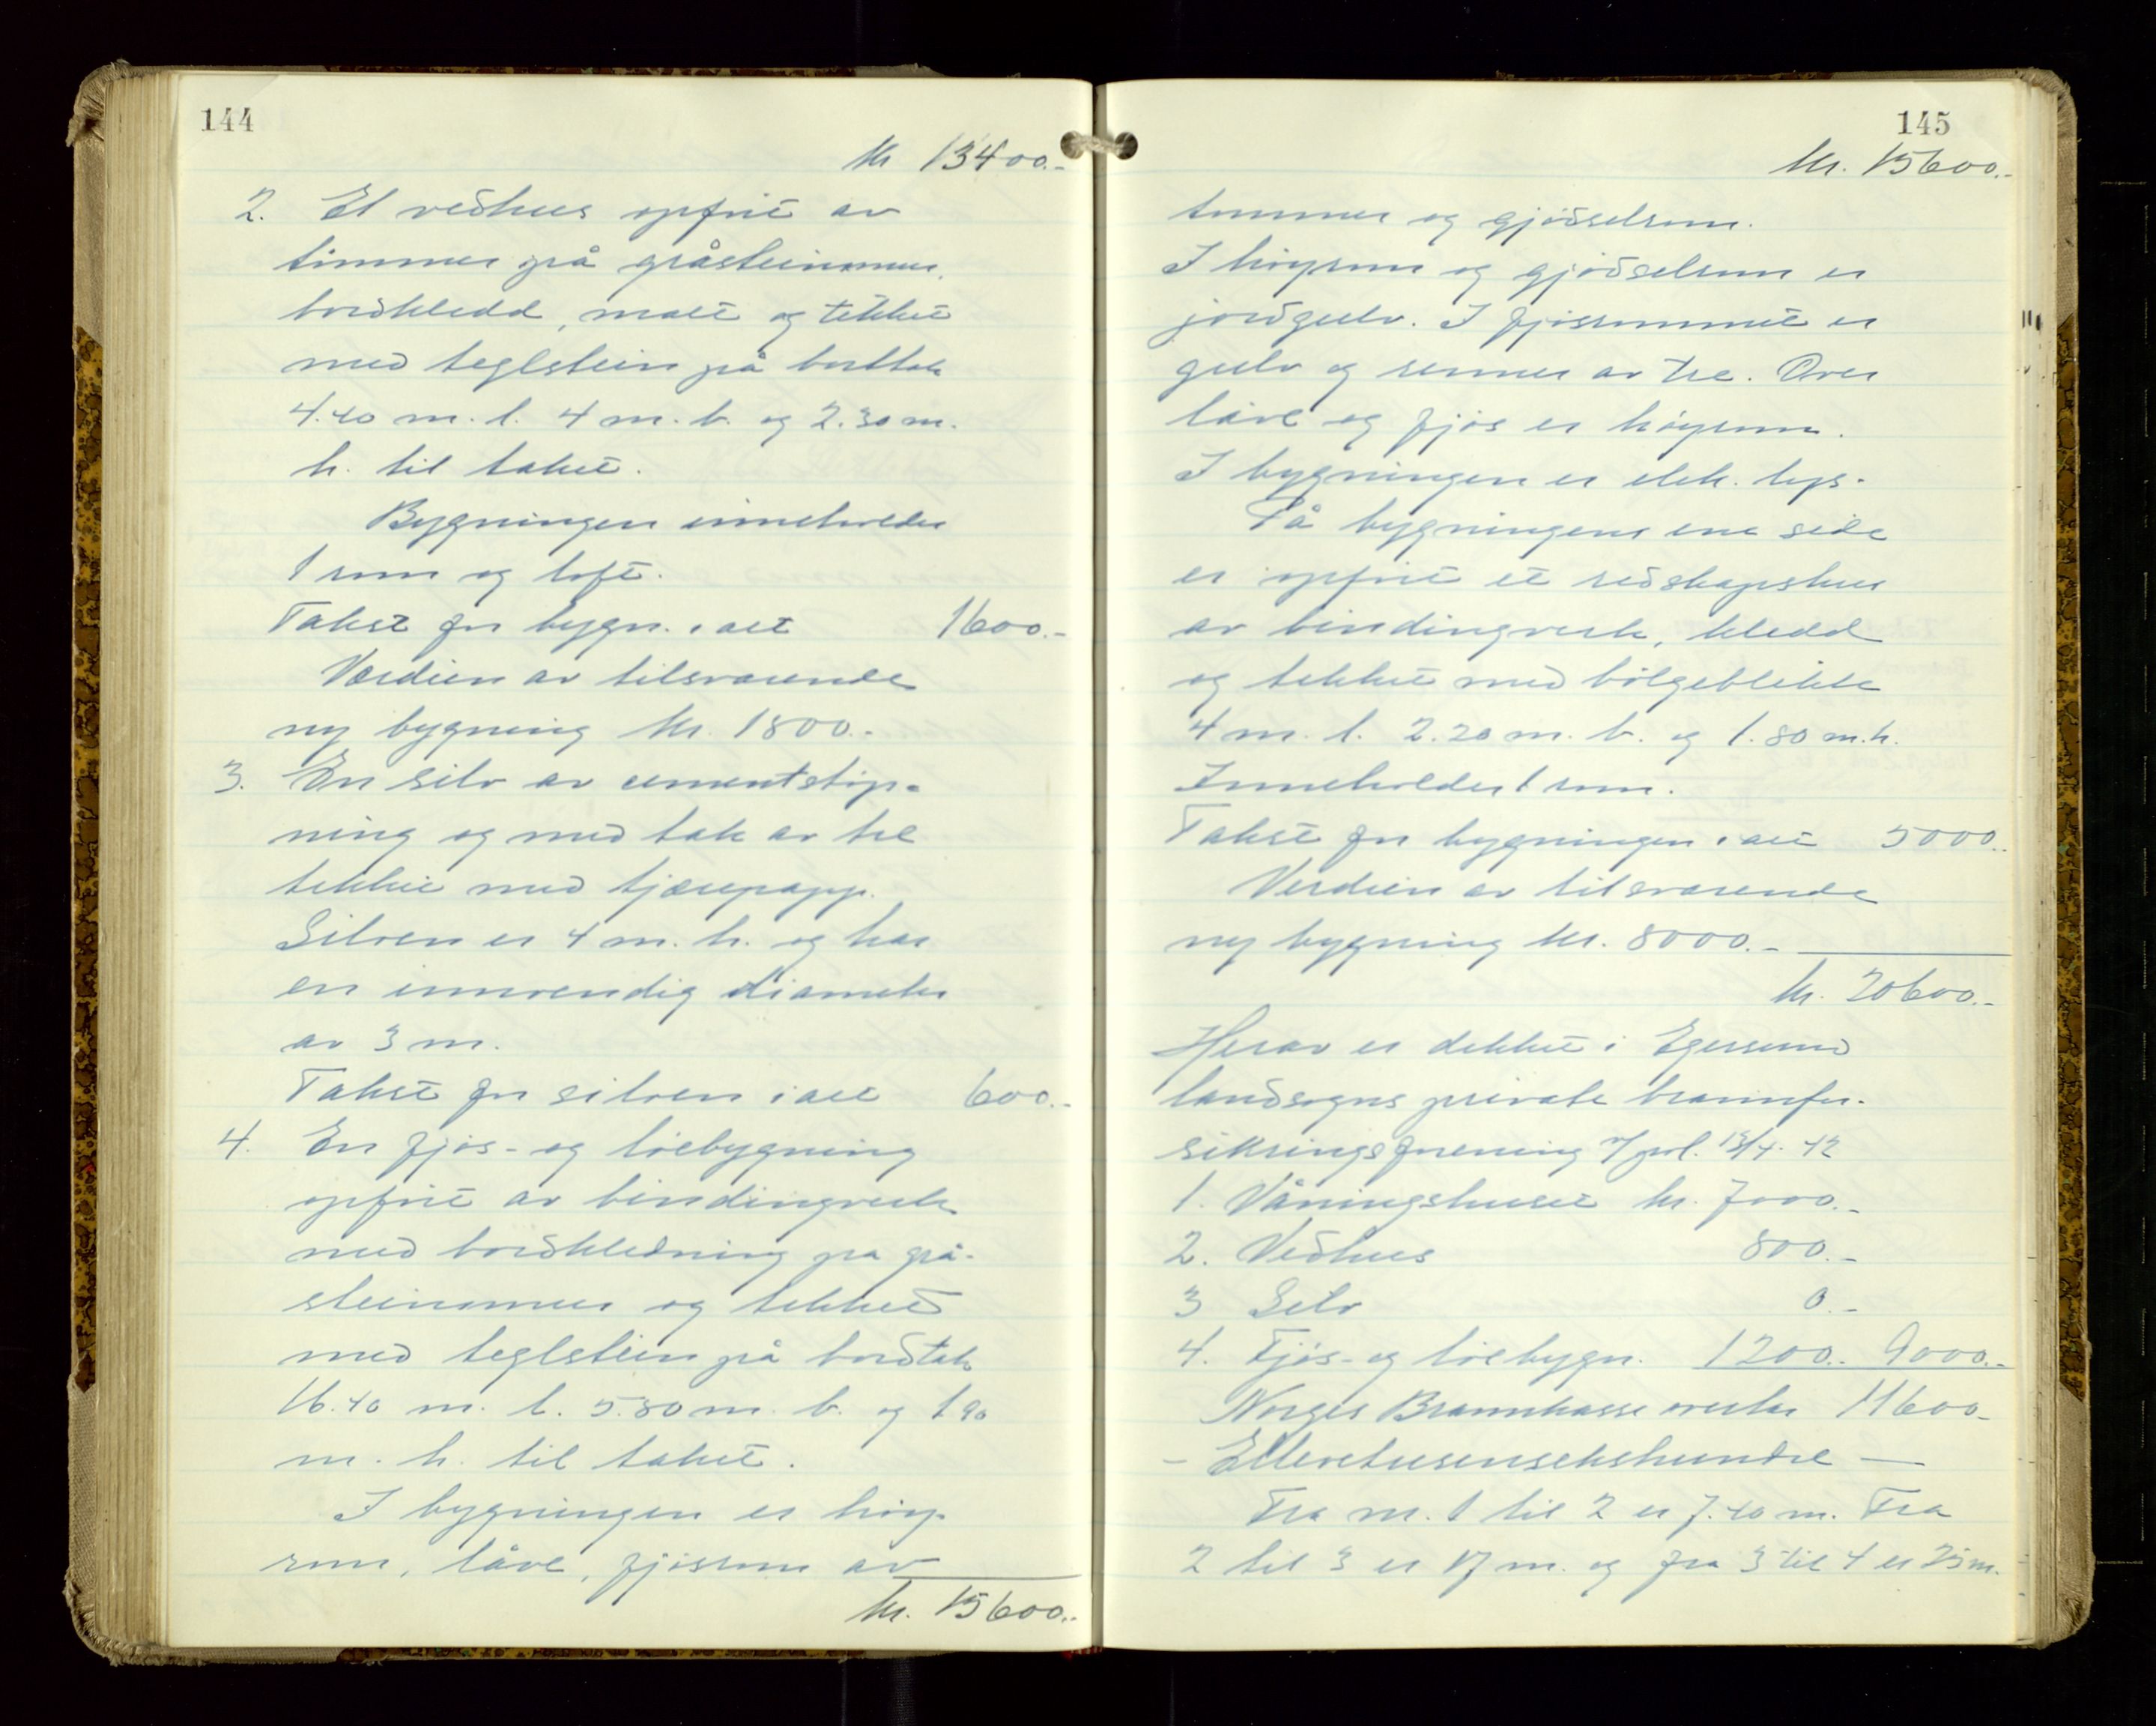 144
kr 13400.-
2. Et vedhus opført av
tømmer på gråsteinsmur,
bordkledd, malt og tekket
med teglstein på bordtak
4.40 m. l. 4 m. b. og 2.30 m.
h. til taket.
Bygningen inneholder
1 rom og loft.
Takst for bygn. i alt 1600.-
Verdien av tilsvarende
ny bygning kr. 1800.-
3. En silo av cementstøp-
ning og med tak av tre
tekket med tjærepapp.
Siloen er 4 m. h. og har
en innvendig diameter
av 3 m.
Takst for siloen i alt 600.-
4. En fjøs- og løebygning
opført av bindingverk
med bordkledning på grå-
steinsmur og tekket
med teglstein på bordtak
16.40 m. l. 5.80 m. b. og 1.90
m. h. til taket.
I bygningen er høy-
rom, låve, fjøsrom av
kr. 15600.-
145
kr. 15600.-
tømmer og gjødselrom.
I høyrom og gjødselrom er
jordgulv. I fjøsrommet er
gulv og renner av tre. Over
låve og fjøs er høyrom.
I bygningen er elek. lys.
På bygningens ene side
er opført et redskapshus
av bindingverk, kledd
og tekket med bølgeblikk
4 m. l. 2.20 m. b. og 1.80 m. h.
Inneholder 1 rom.
Takst for bygningen i alt 5000.-
Verdien av tilsvarende
ny bygning kr. 8000.-
kr. 20600.-
Herav er dekket i Egersund
landsogns private brannfor-
sikringsforening / pol. 13/4-42
1. Våningshuset kr. 7000.-
2. Vedhus 800.-
3 Silo 0.-
4. Fjøs- og løebygn. 1200.- 9000.-
Norges Brannkasse overtar 11600.-
- Ellevetusensekshundre -
Fra nr. 1 til 2 er 7.40 m. Fra
2 til 3 er 17 m. og fra 3 til 4 er 25 m.